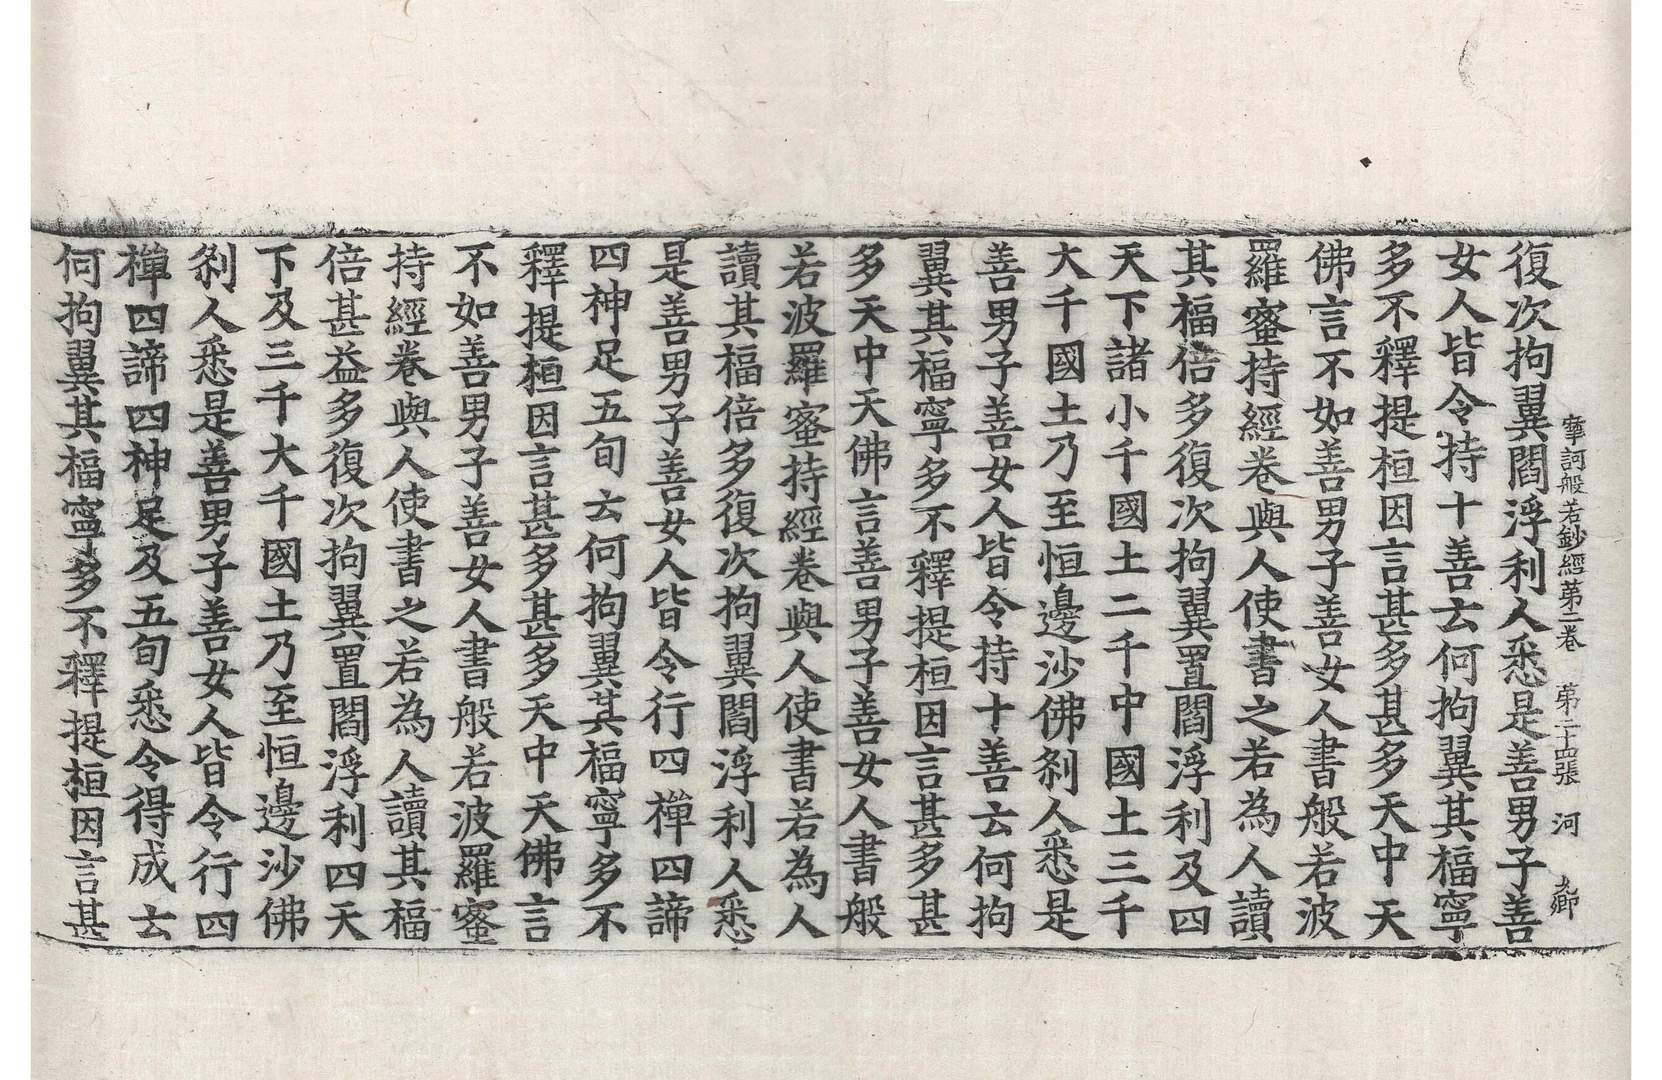 摩訶般若鈔經第二卷 第二十四張 河 九卿
復次拘翼閻浮利人悉是善男子善
女人皆令持十善云何拘翼其福寧
多不釋提桓因言甚多甚多天中天
佛言不如善男子善女人書般若波
羅蜜持經卷與人使書之若為人讀
其福倍多復次拘翼置閻浮利及四
天下諸小千國土二千中國土三千
大千國土乃至恒邊沙佛剎人悉是
善男子善女人皆令持十善云何拘
翼其福寧多不釋提桓因言甚多甚
多天中天佛言善男子善女人書般
若波羅蜜持經卷與人使書若為人
讀其福倍多復次拘翼閻浮利人悉
是善男子善女人皆令行四禪四諦
四神足五旬云何拘翼其福寧多不
釋提桓因言甚多甚多天中天佛言
不如善男子善女人書般若波羅蜜
持經卷與人使書之若為人讀其福
倍甚益多復次拘翼置閻浮利四天
下及三千大千國土乃至恒邊沙佛
剎人悉是善男子善女人皆令行四
禪四諦四神足及五旬悉令得成云
何拘翼其福寧多不釋提桓因言甚